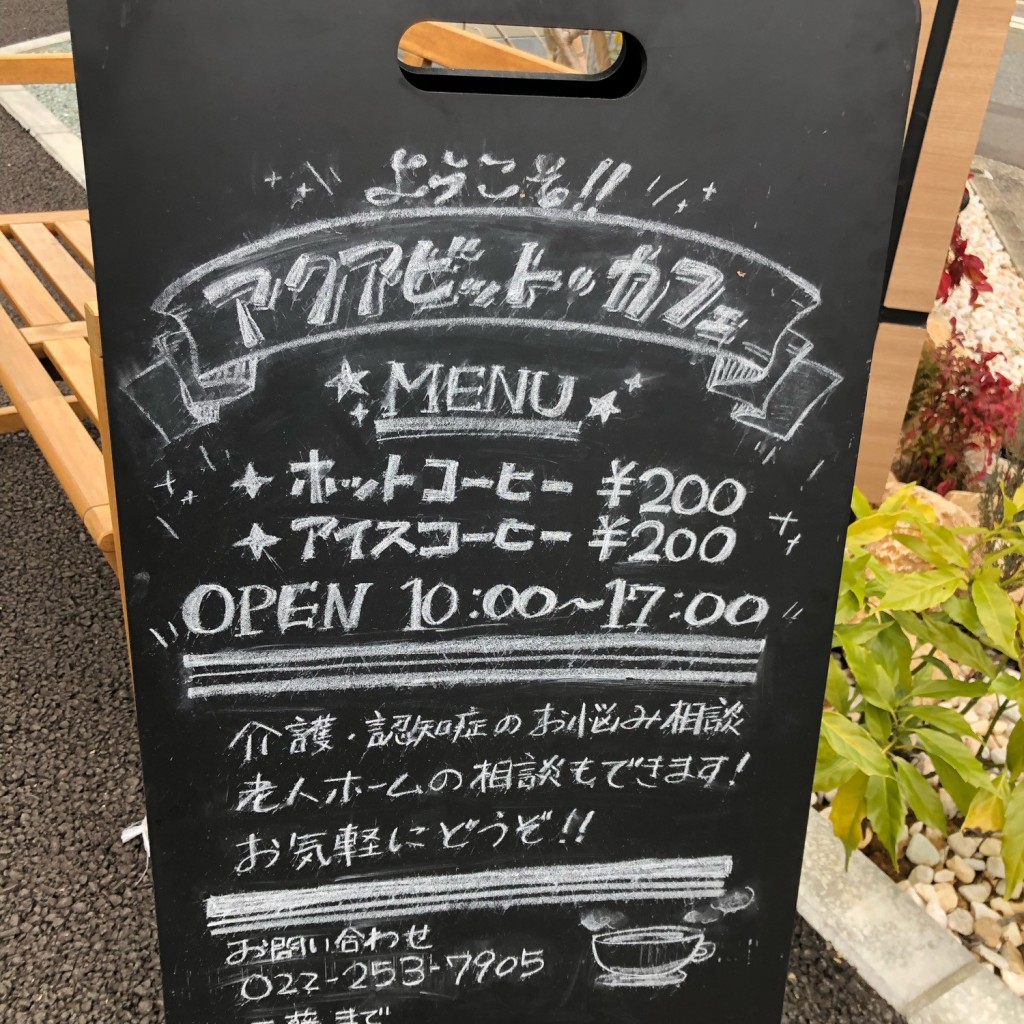 ようこそ!!
アクアビット・カフェ
MENU
ホットコーヒー ¥200
アイスコーヒー ¥200
OPEN 10:00~17:00
介護・認知症のお悩み相談
老人ホームの相談もできます!
お気軽にどうぞ!!
お問い合わせ
022-253-7905
藤まで